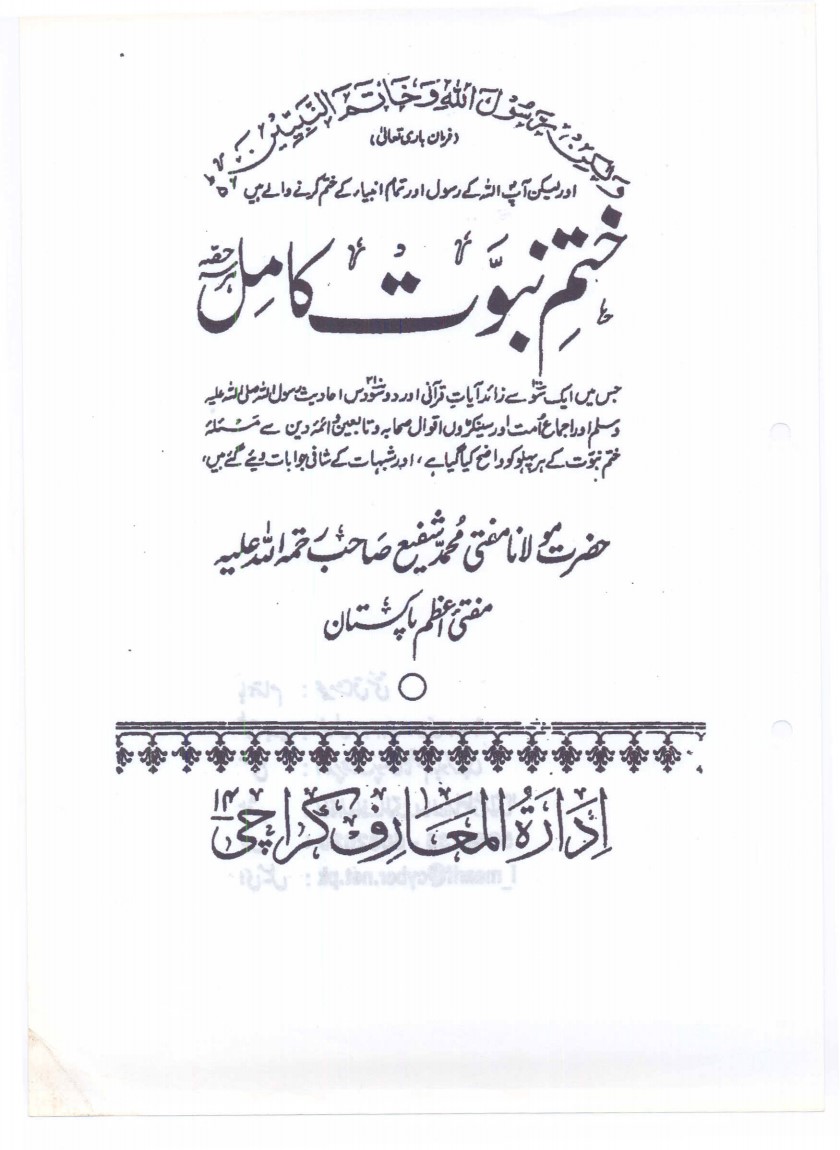 وَلٰكِنْ رَسُوْلَ اللّٰهِ وَخَاتَمَ النَّبِيّٖنَ
(فرمان باری تعالیٰ)
اور لیکن آپؐ اللہ کے رسول اور تمام انبیاء کے ختم کرنے والے ہیں
ختمِ نبوّت کامِل ہر سہ حصّہ
جس میں ایک سو ۱۰۰ سے زائد آیاتِ قرآنی اور دو سو دس ۲۱۰ احادیث رسول اللہ صلی اللہ علیہ
وسلم اور اجماع اُمت اور سینکڑوں اقوال صحابہ و تابعین و ائمۂ دین سے مسئلۂ
ختم نبوّت کے ہر پہلو کو واضح کیا گیا ہے، اور شبہات کے شافی جوابات دیئے گئے ہیں،
حضرت مولانا مفتی محمد شفیع صاحب رحمۃ اللہ علیہ
مفتیٔ اعظم پاکستان
اِدَارَةُ المَعَارِف کراچی ۱۴